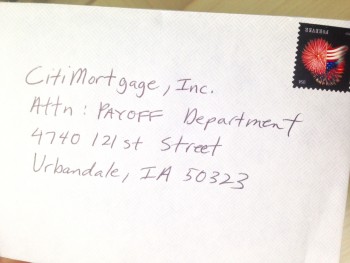 CitiMortgage, Inc.
Attn: PAYOFF Department
4740 121st Street
Urbandale, IA 50323
FOREVER